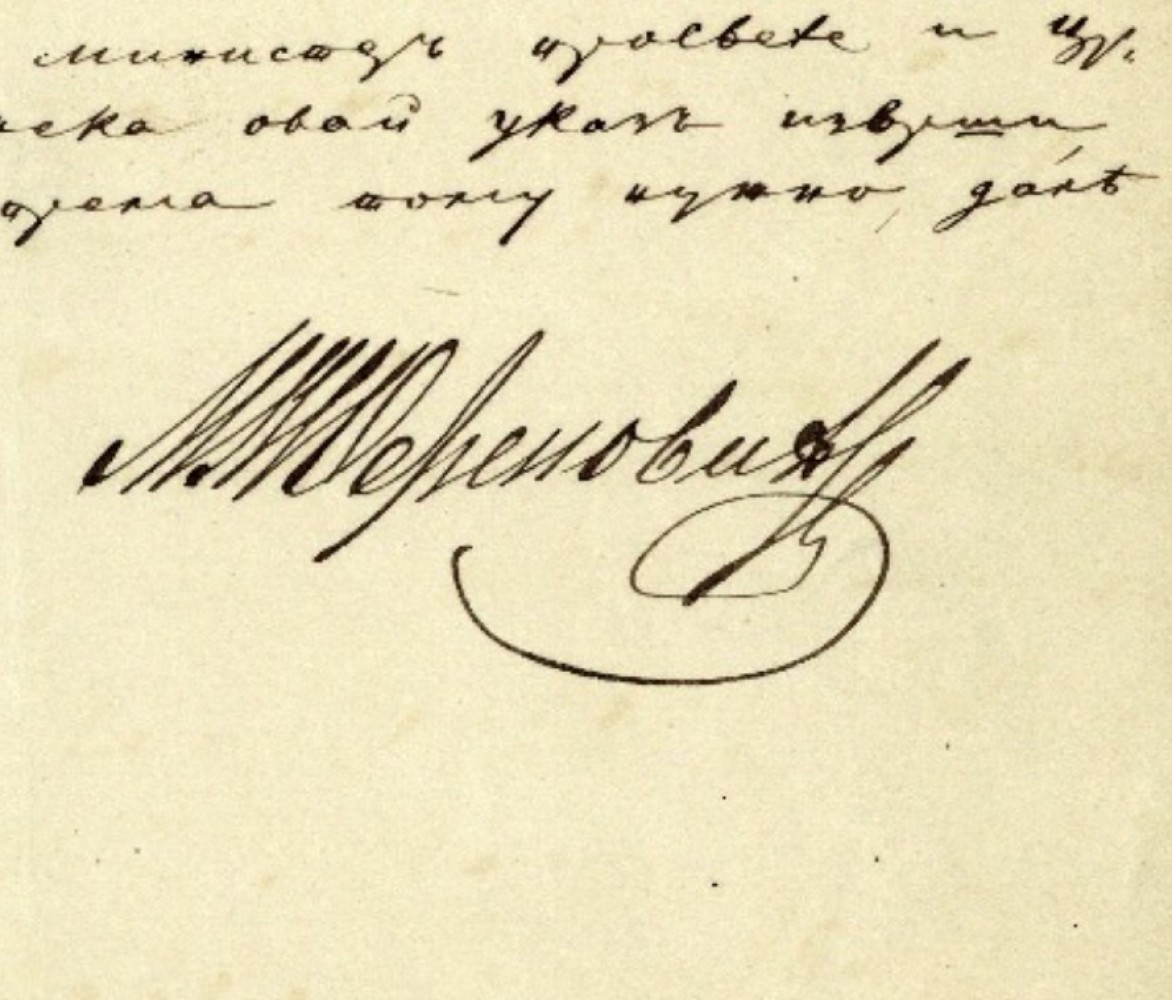 министръ просвете и цр.
нека овай указъ изврши,
према тому нужно, далѣ
М. М. Обреновићъ